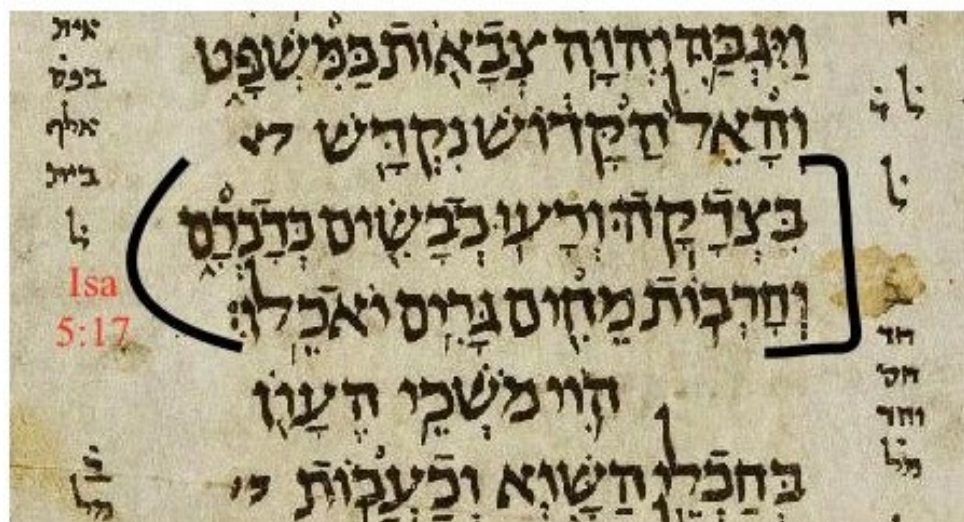 וַיִּגְבַּהּ יְהוָה צְבָאוֹת בַּמִּשְׁפָּט
וְהָאֵל הַקָּדוֹשׁ נִקְדָּשׁ
בִּצְדָקָה׃ וְרָעוּ כְבָשִׂים כְּדָבְרָם
וְחָרְבוֹת מֵחִים גָּרִים יֹאכֵלוּ׃
הוֹי מֹשְׁכֵי הֶעָוֺן
בְּחַבְלֵי הַשָּׁוְא וְכַעֲבוֹת
ל
חד
חס
וחד
מל
אית
בפס
אלף
בית
ל
Isa
5:17